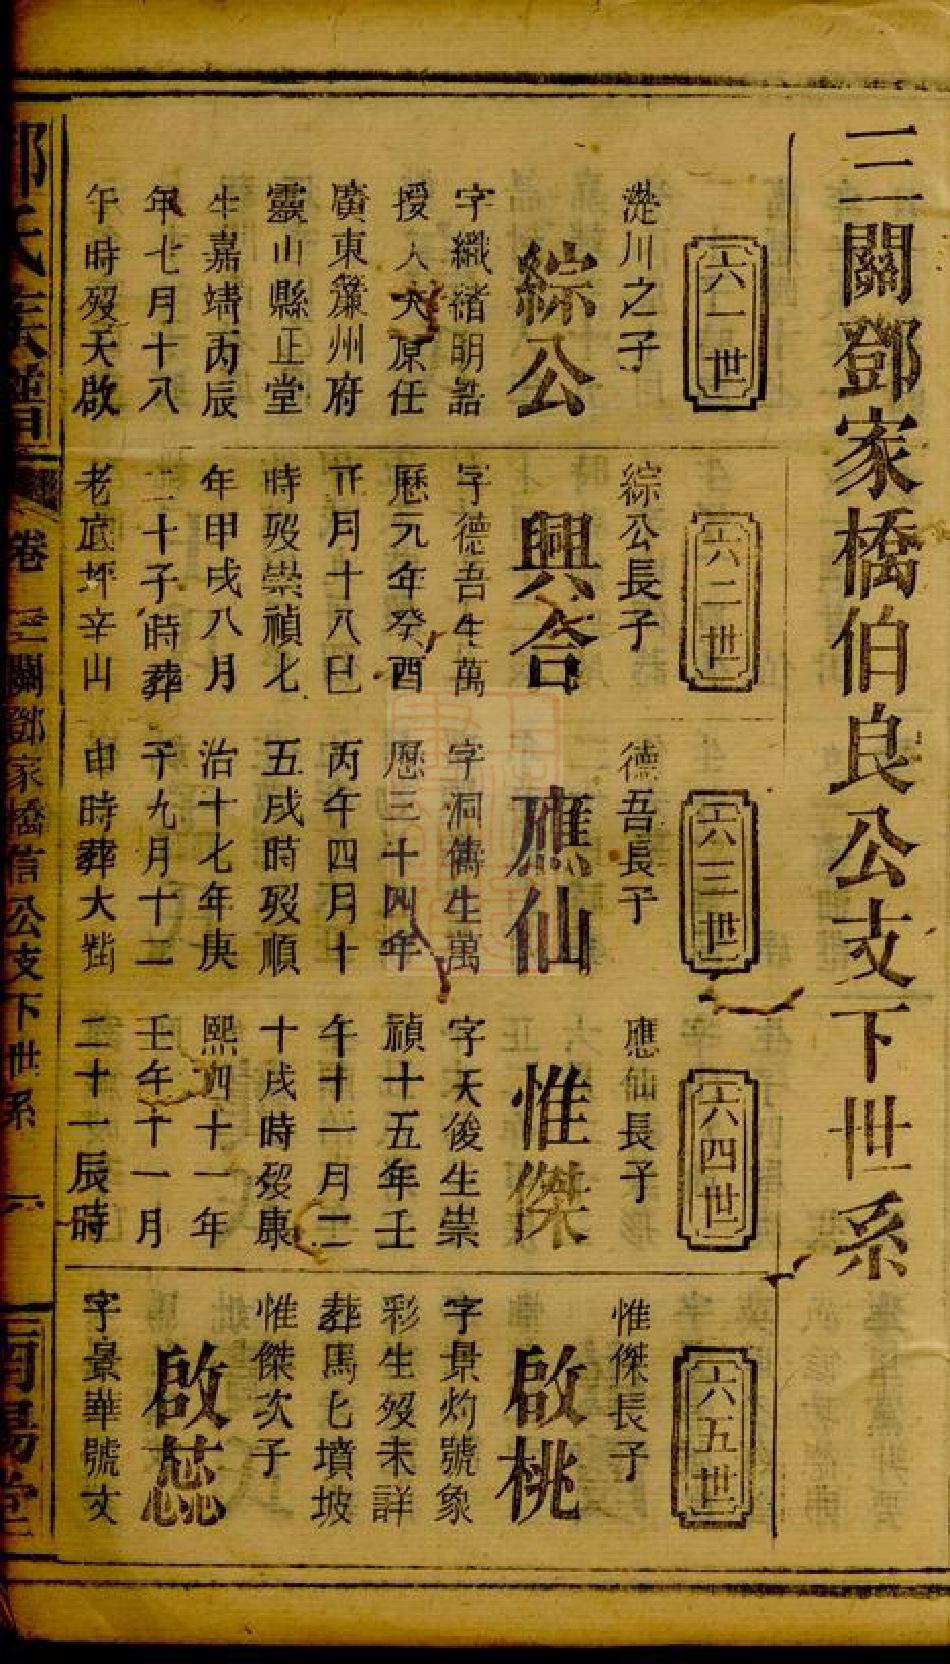 三關鄧家橋伯良公支下世系
六一世
漇川之子
綜公
字織緒明誥
授人大原任
廣東簾州府
靈山縣正堂
生嘉靖丙辰
年七月十八
午時歿天啟
六二世
綜公長子
興合
字德吾生萬
歷元年癸酉
正月十八巳
時歿崇禎七
年甲戌八月
二十子時葬
老底坪辛山
六三世
德吾長子
應仙
字洞儁生萬
歷三十四年
丙午四月十
五戌時歿順
治十七年庚
子九月十二
申時葬大
六四世
應仙長子
惟傑
字天後生崇
禎十五年壬
午十一月二
十戌時歿康
熙四十一年
壬午十一月
二十一辰時
六五世
惟傑長子
啟桃
字景灼號象
彩生歿未詳
葬馬匕墳坡
惟傑次子
啟蕊
字景華號文
鄧氏宗譜
卷
三關鄧家橋信公支下世系
南陽堂